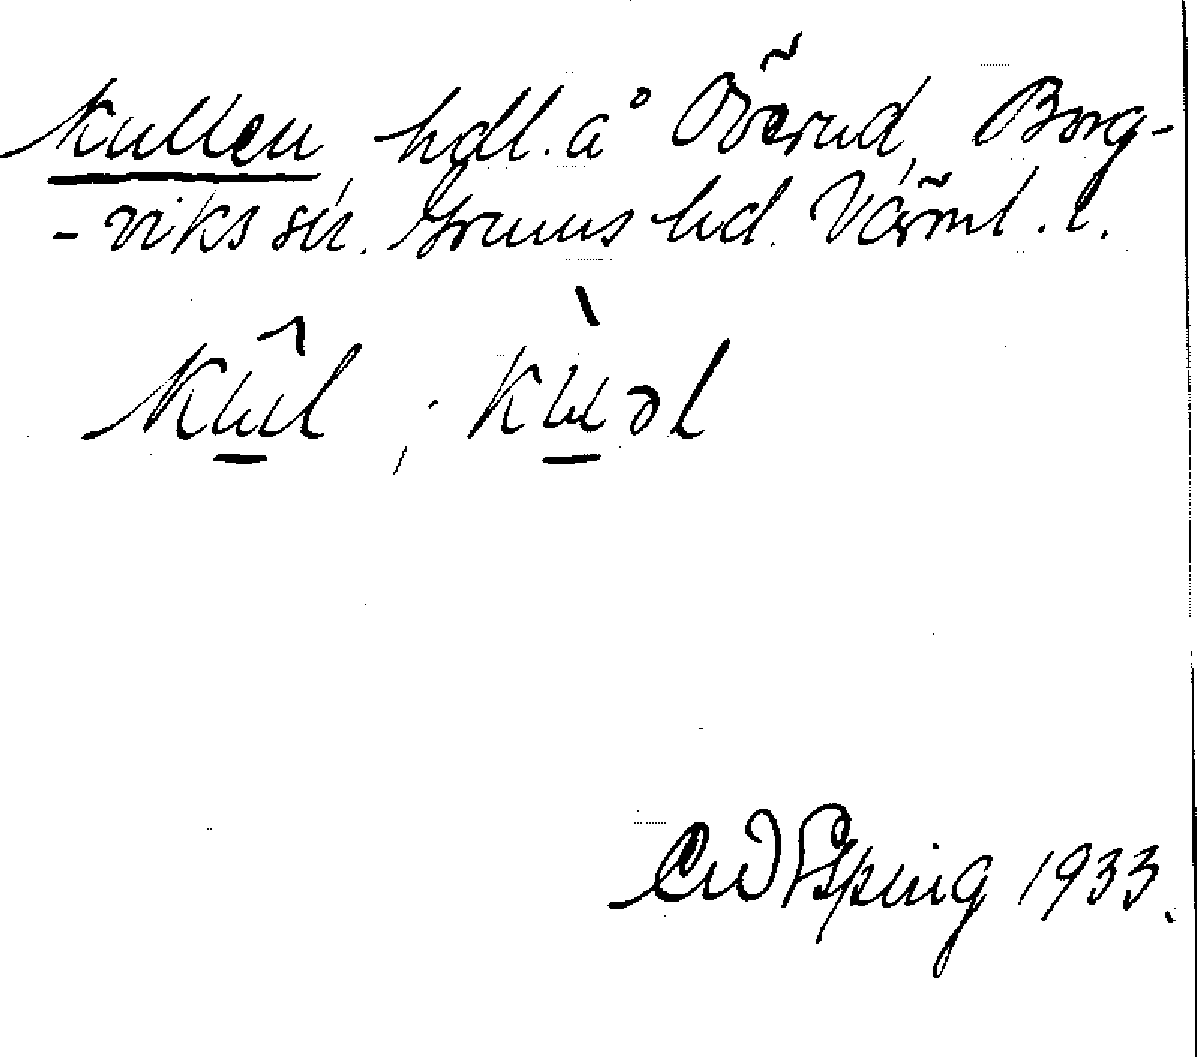 Kullen hdl. å Överud, Borg-
-viks sn. Grums hd. Värml. l.
Kul ; Kuəl
Espeng 1933.